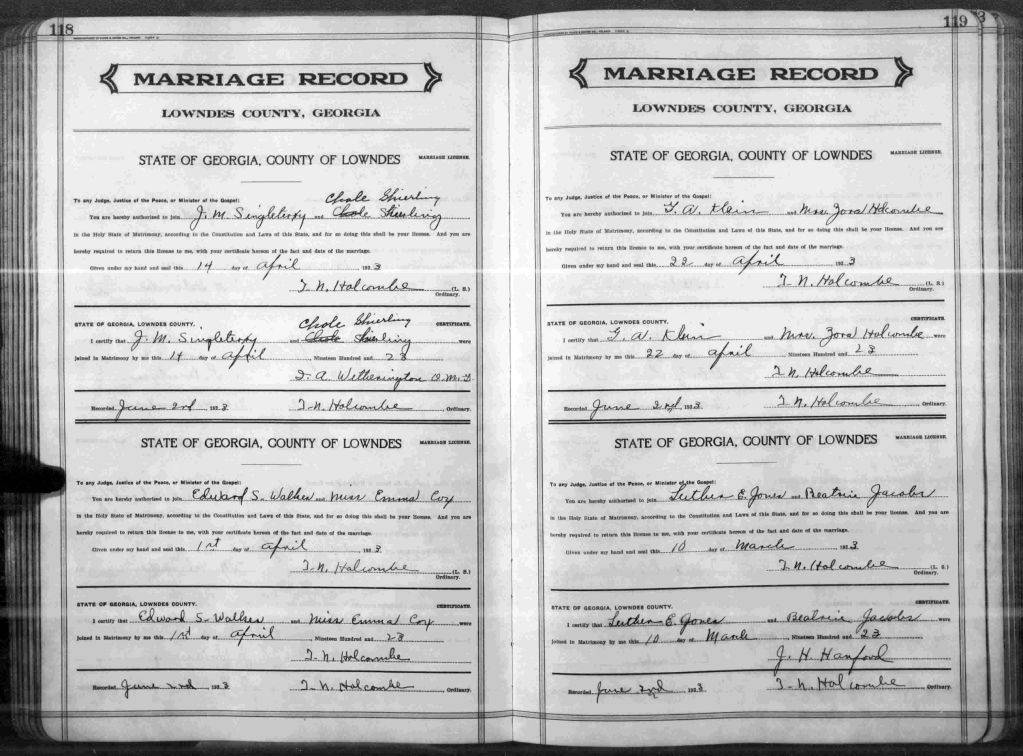 118
MARRIAGE RECORD
LOWNDES COUNTY, GEORGIA
STATE OF GEORGIA, COUNTY OF LOWNDES MARRIAGE LICENSE.
To any Judge, Justice of the Peace, or Minister of the Gospel: Chole Shierling
You are hereby authorized to join J. M. Singleterry and Chole Shierling
in the Holy State of Matrimony, according to the Constitution and Laws of this State, and for so doing this shall be your license. And you are
hereby required to return this license to me, with your certificate hereon of the fact and date of the marriage.
Given under my hand and seal this 14 day of April 1923
T. N. Holcombe (L. S.)
Ordinary.
STATE OF GEORGIA, LOWNDES COUNTY. Chole Shierling CERTIFICATE.
I certify that J. M. Singleterry and Chole Shierling were
joined in Matrimony by me this 14 day of April, Nineteen Hundred and 23
A. Wetherington O. M. G
Recorded June 2nd 1923 T. N. Holcombe Ordinary.
STATE OF GEORGIA, COUNTY OF LOWNDES MARRIAGE LICENSE.
To any Judge, Justice of the Peace, or Minister of the Gospel:
You are hereby authorized to join Edward S. Walker and Miss Emma Cox
in the Holy State of Matrimony, according to the Constitution and Laws of this State, and for so doing this shall be your license. And you are
hereby required to return this license to me, with your certificate hereon of the fact and date of the marriage.
Given under my hand and seal this 1st day of April 1923
T. N. Holcombe (L. S.)
Ordinary.
STATE OF GEORGIA, LOWNDES COUNTY. CERTIFICATE.
I certify that Edward S. Walker and Miss Emma Cox were
joined in Matrimony by me this 1st day of April, Nineteen Hundred and 23
T. N. Holcombe
Recorded June 2nd 1923 T. N. Holcombe Ordinary.
119
MARRIAGE RECORD
LOWNDES COUNTY, GEORGIA
STATE OF GEORGIA, COUNTY OF LOWNDES MARRIAGE LICENSE.
To any Judge, Justice of the Peace, or Minister of the Gospel:
You are hereby authorized to join G. A. Klein and Mrs. Zora Holcombe
in the Holy State of Matrimony, according to the Constitution and Laws of this State, and for so doing this shall be your license. And you are
hereby required to return this license to me, with your certificate hereon of the fact and date of the marriage.
Given under my hand and seal this 22 day of April 1923
T. N. Holcombe (L. S.)
Ordinary.
STATE OF GEORGIA, LOWNDES COUNTY. CERTIFICATE.
I certify that G. A. Klein and Mrs. Zora Holcombe were
joined in Matrimony by me this 22 day of April, Nineteen Hundred and 23
T. N. Holcombe
Recorded June 2nd 1923 T. N. Holcombe Ordinary.
STATE OF GEORGIA, COUNTY OF LOWNDES MARRIAGE LICENSE.
To any Judge, Justice of the Peace, or Minister of the Gospel:
You are hereby authorized to join Luther E. Jones and Beatrice Jacobs
in the Holy State of Matrimony, according to the Constitution and Laws of this State, and for so doing this shall be your license. And you are
hereby required to return this license to me, with your certificate hereon of the fact and date of the marriage.
Given under my hand and seal this 10 day of March 1923
T. N. Holcombe (L. S.)
Ordinary.
STATE OF GEORGIA, LOWNDES COUNTY. CERTIFICATE.
I certify that Luther E. Jones and Beatrice Jacobs were
joined in Matrimony by me this 10 day of March, Nineteen Hundred and 23
J. H. Hanford
Recorded June 2nd 1923 T. N. Holcombe Ordinary.